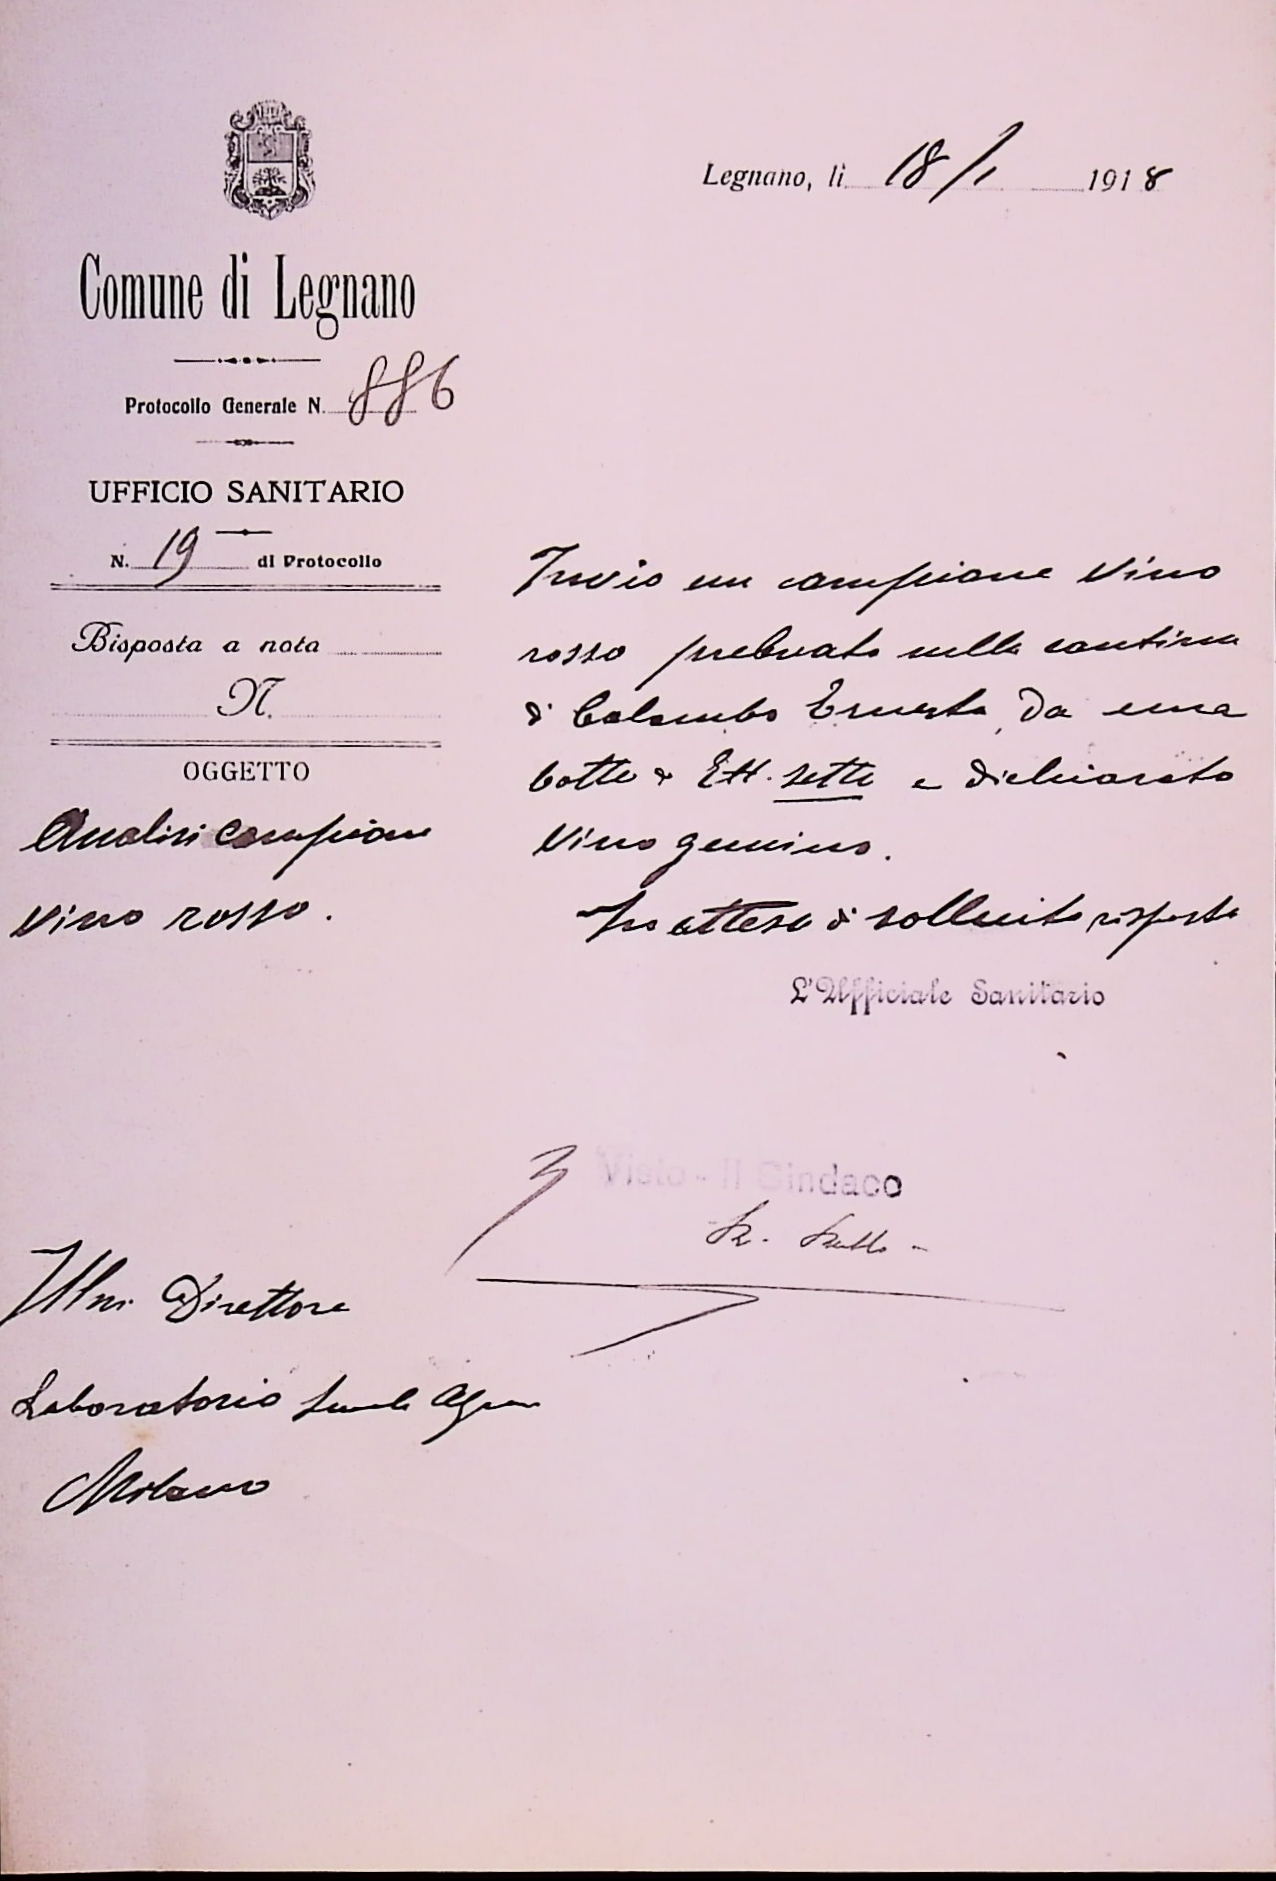 Legnano, li 18/1 1918
Comune di Legnano
Protocollo Generale N. 886
UFFICIO SANITARIO
N. 19 di Protocollo
Risposta a nota
N.
OGGETTO
Analisi campione
vino rosso.
Invio un campione vino
rosso prelevato nella cantina
di Colombo Ernesto, da una
botte di Ett. sette e dichiarato
vino genuino.
In attesa di sollecita risposta
L'Ufficiale Sanitario
Visto - Il Sindaco
Illmo Direttore
Laboratorio
Milano